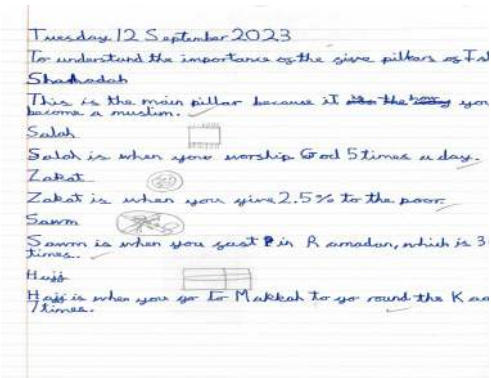 Tuesday 12 September 2023
To understand the importance of the five pillars of Isl
Shahadah
This is the main pillar because it is the how you
become a muslim.
Salah
Salah is when your worship God 5 times a day.
Zakat
Zakat is when you give 2.5% to the poor.
Sawm
Sawm is when you fast in Ramadan, which is 3
times.
Hajj
Hajj is when you go to Makkah to go round the Kaa
7 times.